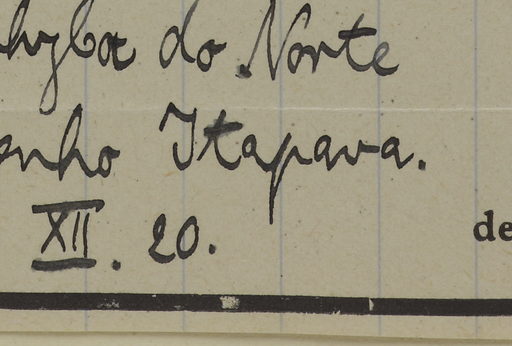 hyba do Norte
nho Itapava.
XII. 20.
de